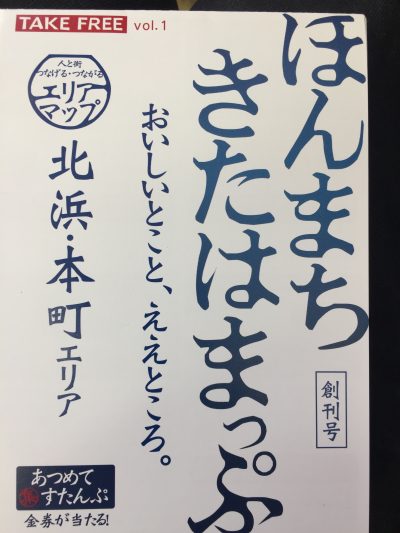 TAKE FREE vol.1
ほんまち
きたはまっぷ
創刊号
おいしいとこと、ええところ。
人と街
つなげる・つながる
エリア
マップ
北浜・本町エリア
あつめて
すたんぷ
金券が当たる!